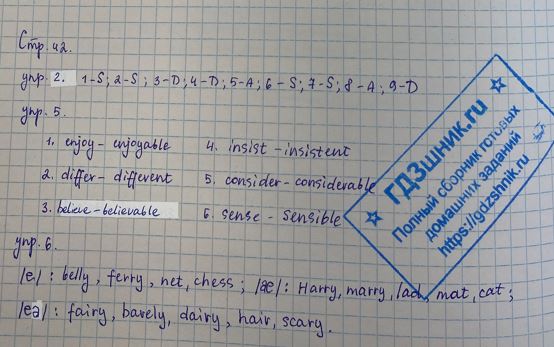 Стр. 42.
упр. 2. 1-S; 2-S; 3-D; 4-D; 5-A; 6-S; 7-S; 8-A; 9-D
упр. 5.
1. enjoy - enjoyable 4. insist - insistent
2. differ - different 5. consider - considerable
3. believe - believable 6. sense - sensible
упр. 6.
/e/: belly, ferry, net, chess; /æ/: Harry, marry, lad, mat, cat;
/eə/: fairy, barely, dairy, hair, scary.
ГДЗшник.ru
Полный сборник готовых
домашних заданий
https://gdzshnik.ru